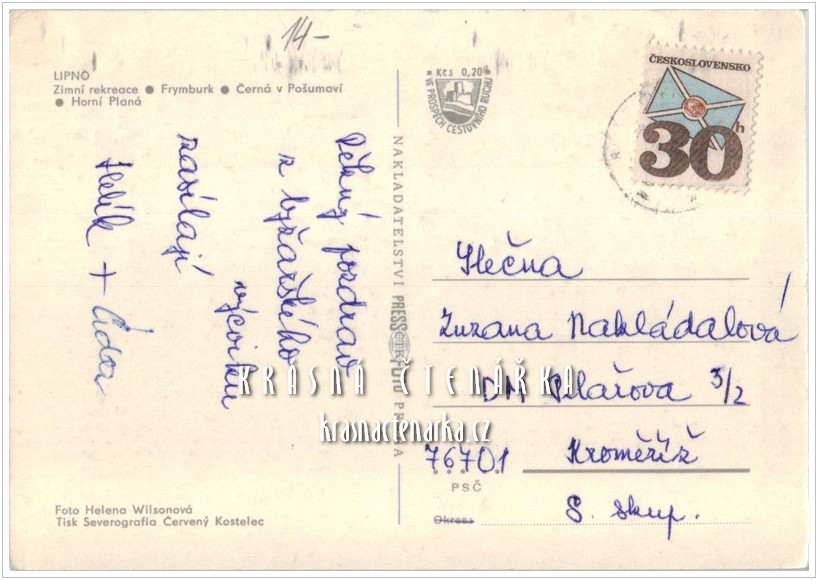 14-
LIPNO
Zimní rekreace ● Frymburk ● Černá v Pošumaví
● Horní Planá
Kčs 0,20
VE PROSPĚCH CESTOVNÍHO RUCHU
ČESKOSLOVENSKO
30h
Pěkný pozdrav
z lyžařského
výcviku
zasílají
Helík + Eida
NAKLADATELSTVÍ PRESSFOTO PRAHA
ČTK
Slečna
Zuzana Nakládalová
DM Pilařova 3/2
76701 Kroměříž
PSČ
S. skup.
Okres:
KRÁSNÁ ČTENÁŘKA
krasnactenarka.cz
Foto Helena Wilsonová
Tisk Severografia Červený Kostelec